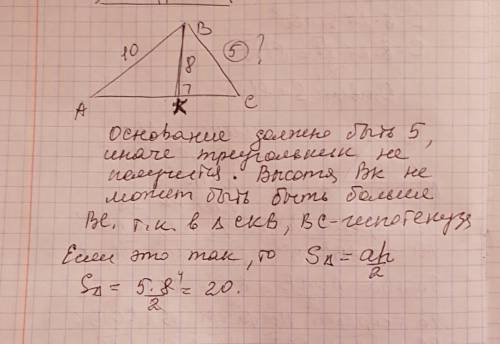 B
10
5 ?
8
A
K
C
Основание должно быть 5,
иначе треугольник не
получается. Высота BK не
может быть быть больше
BC, т.к. в Δ CKB, BC-гипотенуза
Если это так, то S_Δ = ah/2
S_Δ = 5·8⁴/2 = 20.